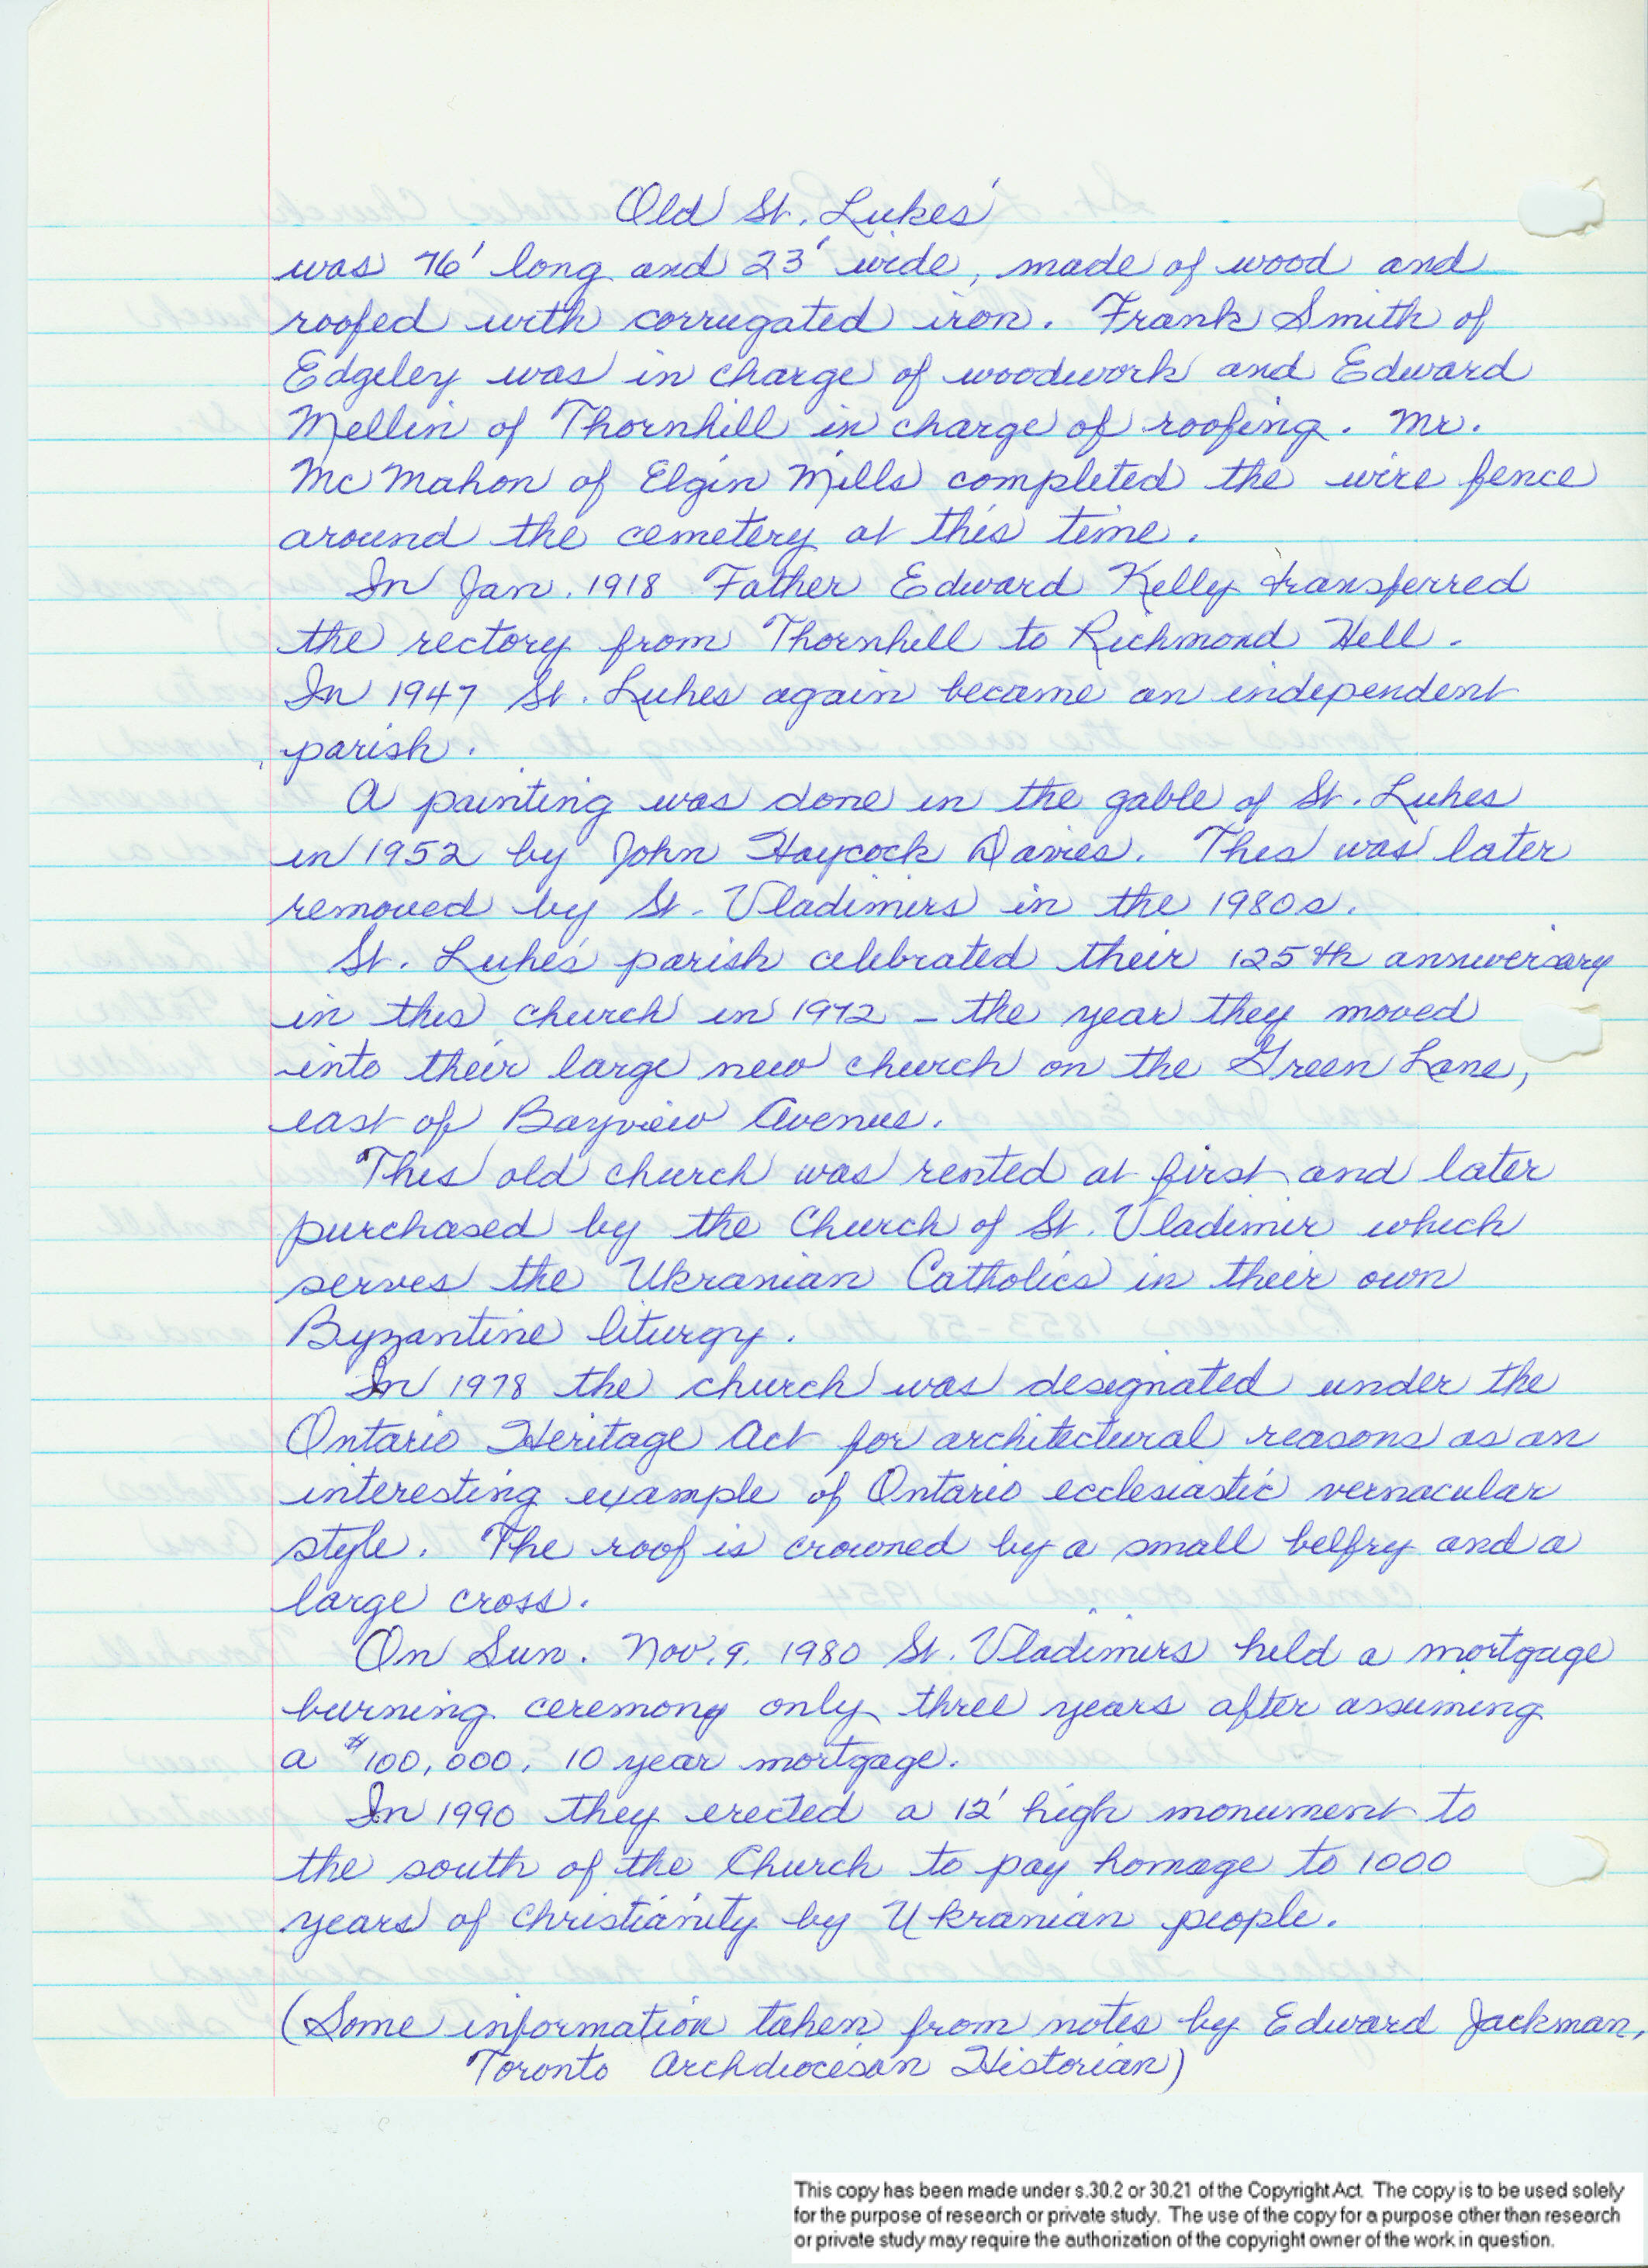 Old St. Lukes'
was 76' long and 23' wide, made of wood and
roofed with corrugated iron. Frank Smith of
Edgeley was in charge of woodwork and Edward
Mellin of Thornhill in charge of roofing. Mr.
McMahon of Elgin Mills completed the wire fence
around the cemetery at this time.
In Jan. 1918 Father Edward Kelly transferred
the rectory from Thornhill to Richmond Hill.
In 1947 St. Lukes again became an independent
parish.
A painting was done in the gable of St. Lukes
in 1952 by John Haycock Davies. This was later
removed by St. Vladimirs in the 1980s.
St. Luke's parish celebrated their 125th anniversary
in this church in 1972 - the year they moved
into their large new church on the Green Lane,
east of Bayview Avenue.
This old church was rented at first and later
purchased by the Church of St. Vladimir which
serves the Ukranian Catholics in their own
Byzantine liturgy.
In 1978 the church was designated under the
Ontario Heritage Act for architectural reasons as an
interesting example of Ontario ecclesiastic vernacular
style. The roof is crowned by a small belfry and a
large cross.
On Sun. Nov. 9. 1980 St. Vladimirs held a mortgage
burning ceremony only three years after assuming
a $100,000. 10 year mortgage.
In 1990 they erected a 12' high monument to
the south of the Church to pay homage to 1000
years of Christianity by Ukranian people.
(Some information taken from notes by Edward Jackman,
Toronto Archdiocesan Historian)
This copy has been made under s.30.2 or 30.21 of the Copyright Act. The copy is to be used solely
for the purpose of research or private study. The use of the copy for a purpose other than research
or private study may require the authorization of the copyright owner of the work in question.